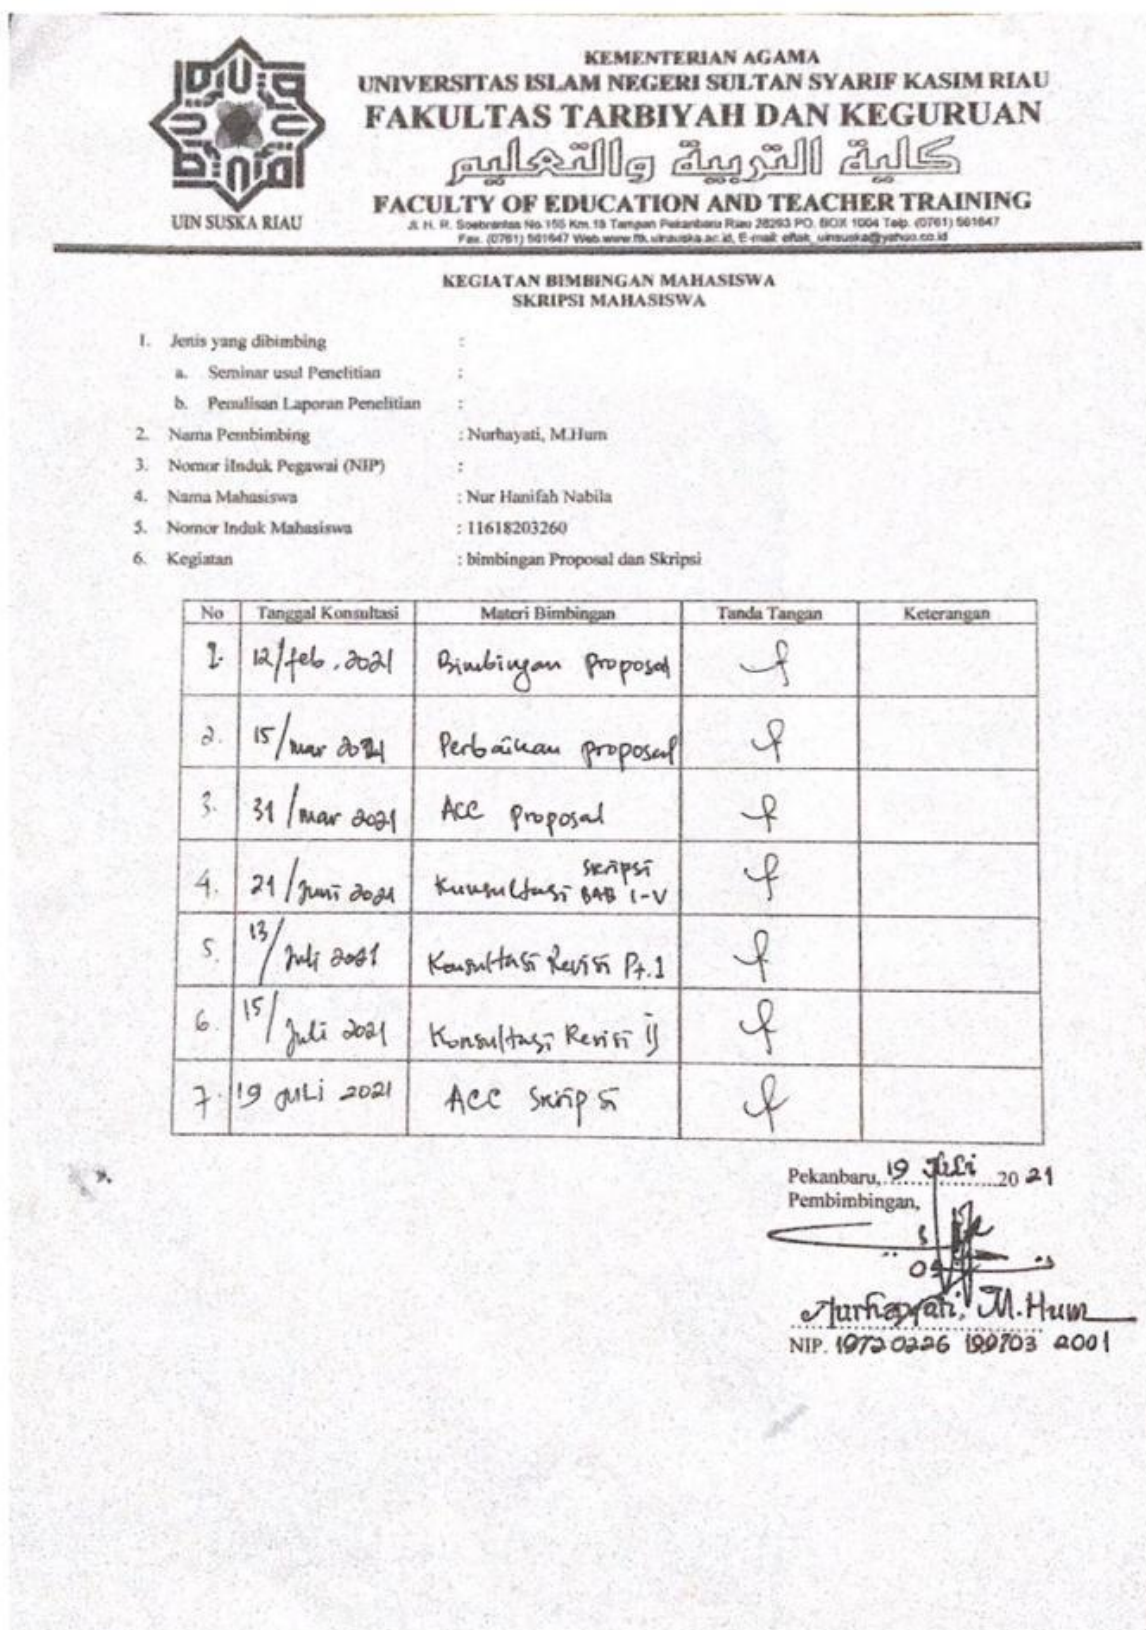 KEMENTERIAN AGAMA
UNIVERSITAS ISLAM NEGERI SULTAN SYARIF KASIM RIAU
FAKULTAS TARBIYAH DAN KEGURUAN
كلية التربية والتعليم
FACULTY OF EDUCATION AND TEACHER TRAINING
Jl. H. R. Soebrantas No.155 Km.18 Tampan Pekanbaru Riau 28293 PO. BOX 1004 Telp. (0761) 561647
Fax. (0761) 561647 Web.www.ftk.uinsuska.ac.id, E-mail: eftak_uinsuska@yahoo.co.id
UIN SUSKA RIAU
KEGIATAN BIMBINGAN MAHASISWA
SKRIPSI MAHASISWA
1. Jenis yang dibimbing :
a. Seminar usul Penelitian :
b. Penulisan Laporan Penelitian :
2. Nama Pembimbing : Nurhayati, M.Hum
3. Nomor iInduk Pegawai (NIP) :
4. Nama Mahasiswa : Nur Hanifah Nabila
5. Nomor Induk Mahasiswa : 11618203260
6. Kegiatan : bimbingan Proposal dan Skripsi
No Tanggal Konsultasi Materi Bimbingan Tanda Tangan Keterangan
1. 12/feb. 2021 Bimbingan proposal
2. 15/mar 2021 Perbaikan proposal
3. 31/mar 2021 ACC proposal
4. 21/Juni 2021 Kunsultasi skripsi BAB I-V
5. 13/Juli 2021 Konsultasi Revisi Pt.1
6. 15/Juli 2021 Konsultasi Revisi ij
7. 19 JULi 2021 ACC Skripsi
Pekanbaru, 19 Juli 2021
Pembimbingan,
Nurhayati, M.Hum
NIP. 19720226 199703 2001